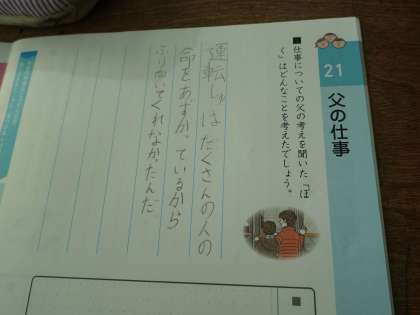 21
父の仕事
■仕事についての父の考えを聞いた「ぼ
く」はどんなことを考えたでしょう。
運転しゅはたくさんの人の
命をあずかっているから
ふり向いてくれなかったんだ